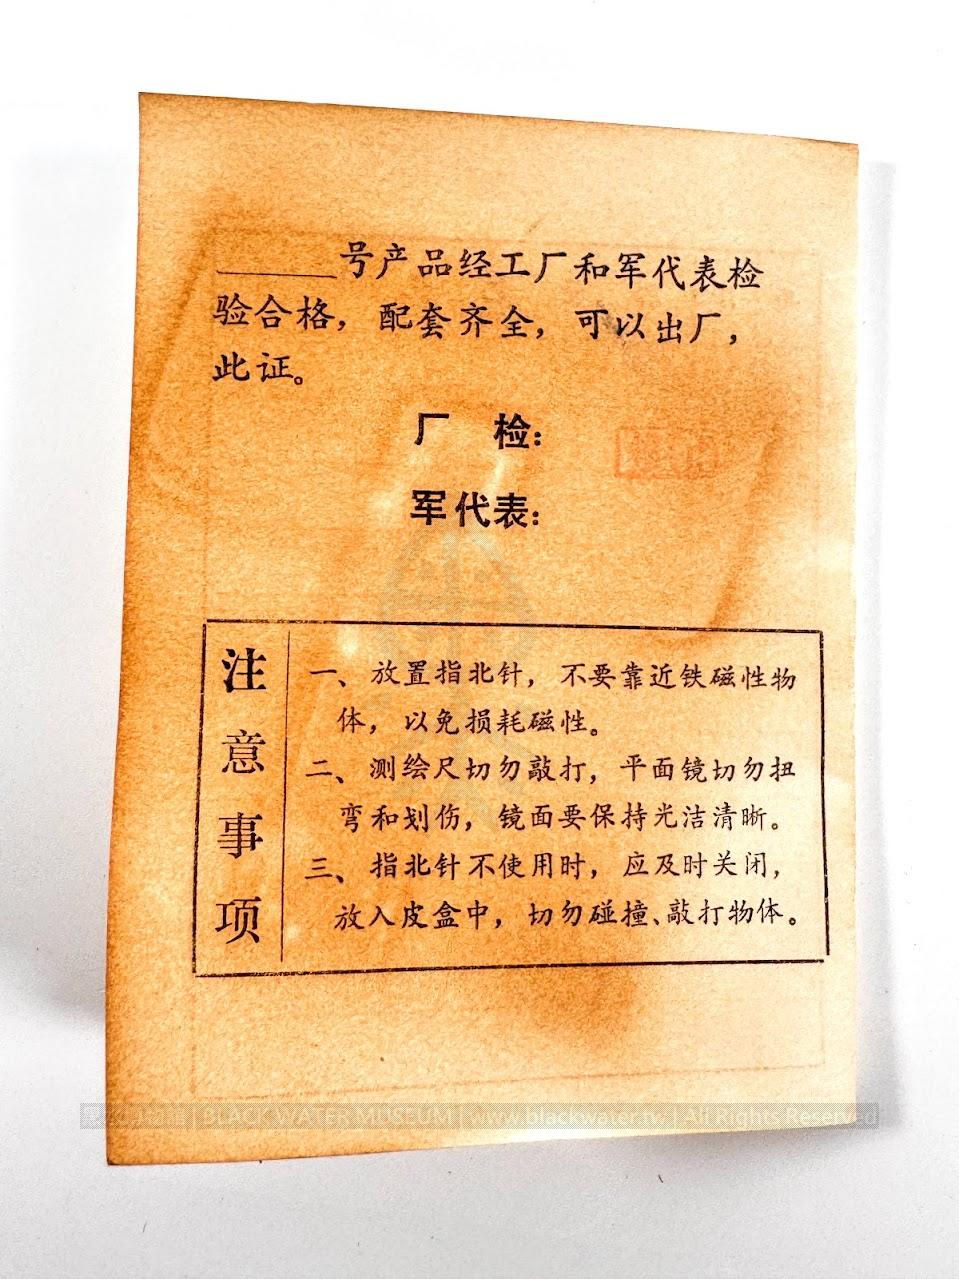 ______号产品经工厂和军代表检
验合格，配套齐全，可以出厂，
此证。
厂 检：
军代表：
注意事项
一、放置指北针，不要靠近铁磁性物
体，以免损耗磁性。
二、测绘尺切勿敲打，平面镜切勿扭
弯和划伤，镜面要保持光洁清晰。
三、指北针不使用时，应及时关闭，
放入皮盒中，切勿碰撞、敲打物体。
| BLACKWATER MUSEUM | www.blackwater.tw | All Rights Reserved